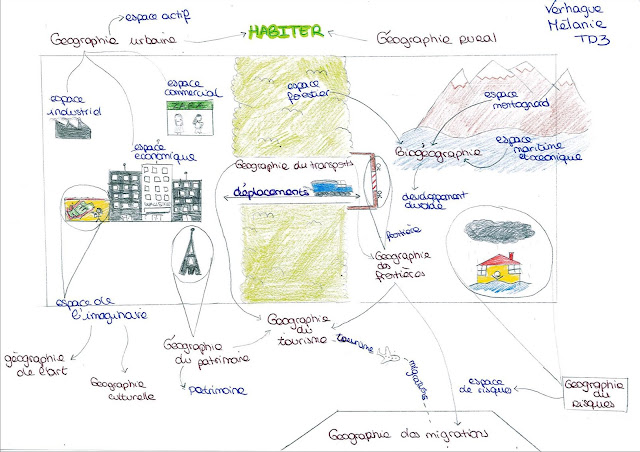 espace actif
Géographie urbaine
HABITER
Géographie Rural
Verhague
Mélanie
TD3
espace
industriel
espace
commercial
espace
économique
espace
forestier
espace
montagnard
Biogéographie
espace
maritime
et océanique
développement
durable
Géographie du transports
déplacements
frontière
Géographie
des
frontières
espace de
l'imaginaire
géographie
de l'art
Géographie
culturelle
Géographie
du patrimoine
patrimoine
Géographie
du
tourisme
tourisme
migrations
espace
de risques
Géographie
du
risques
Géographie des migrations